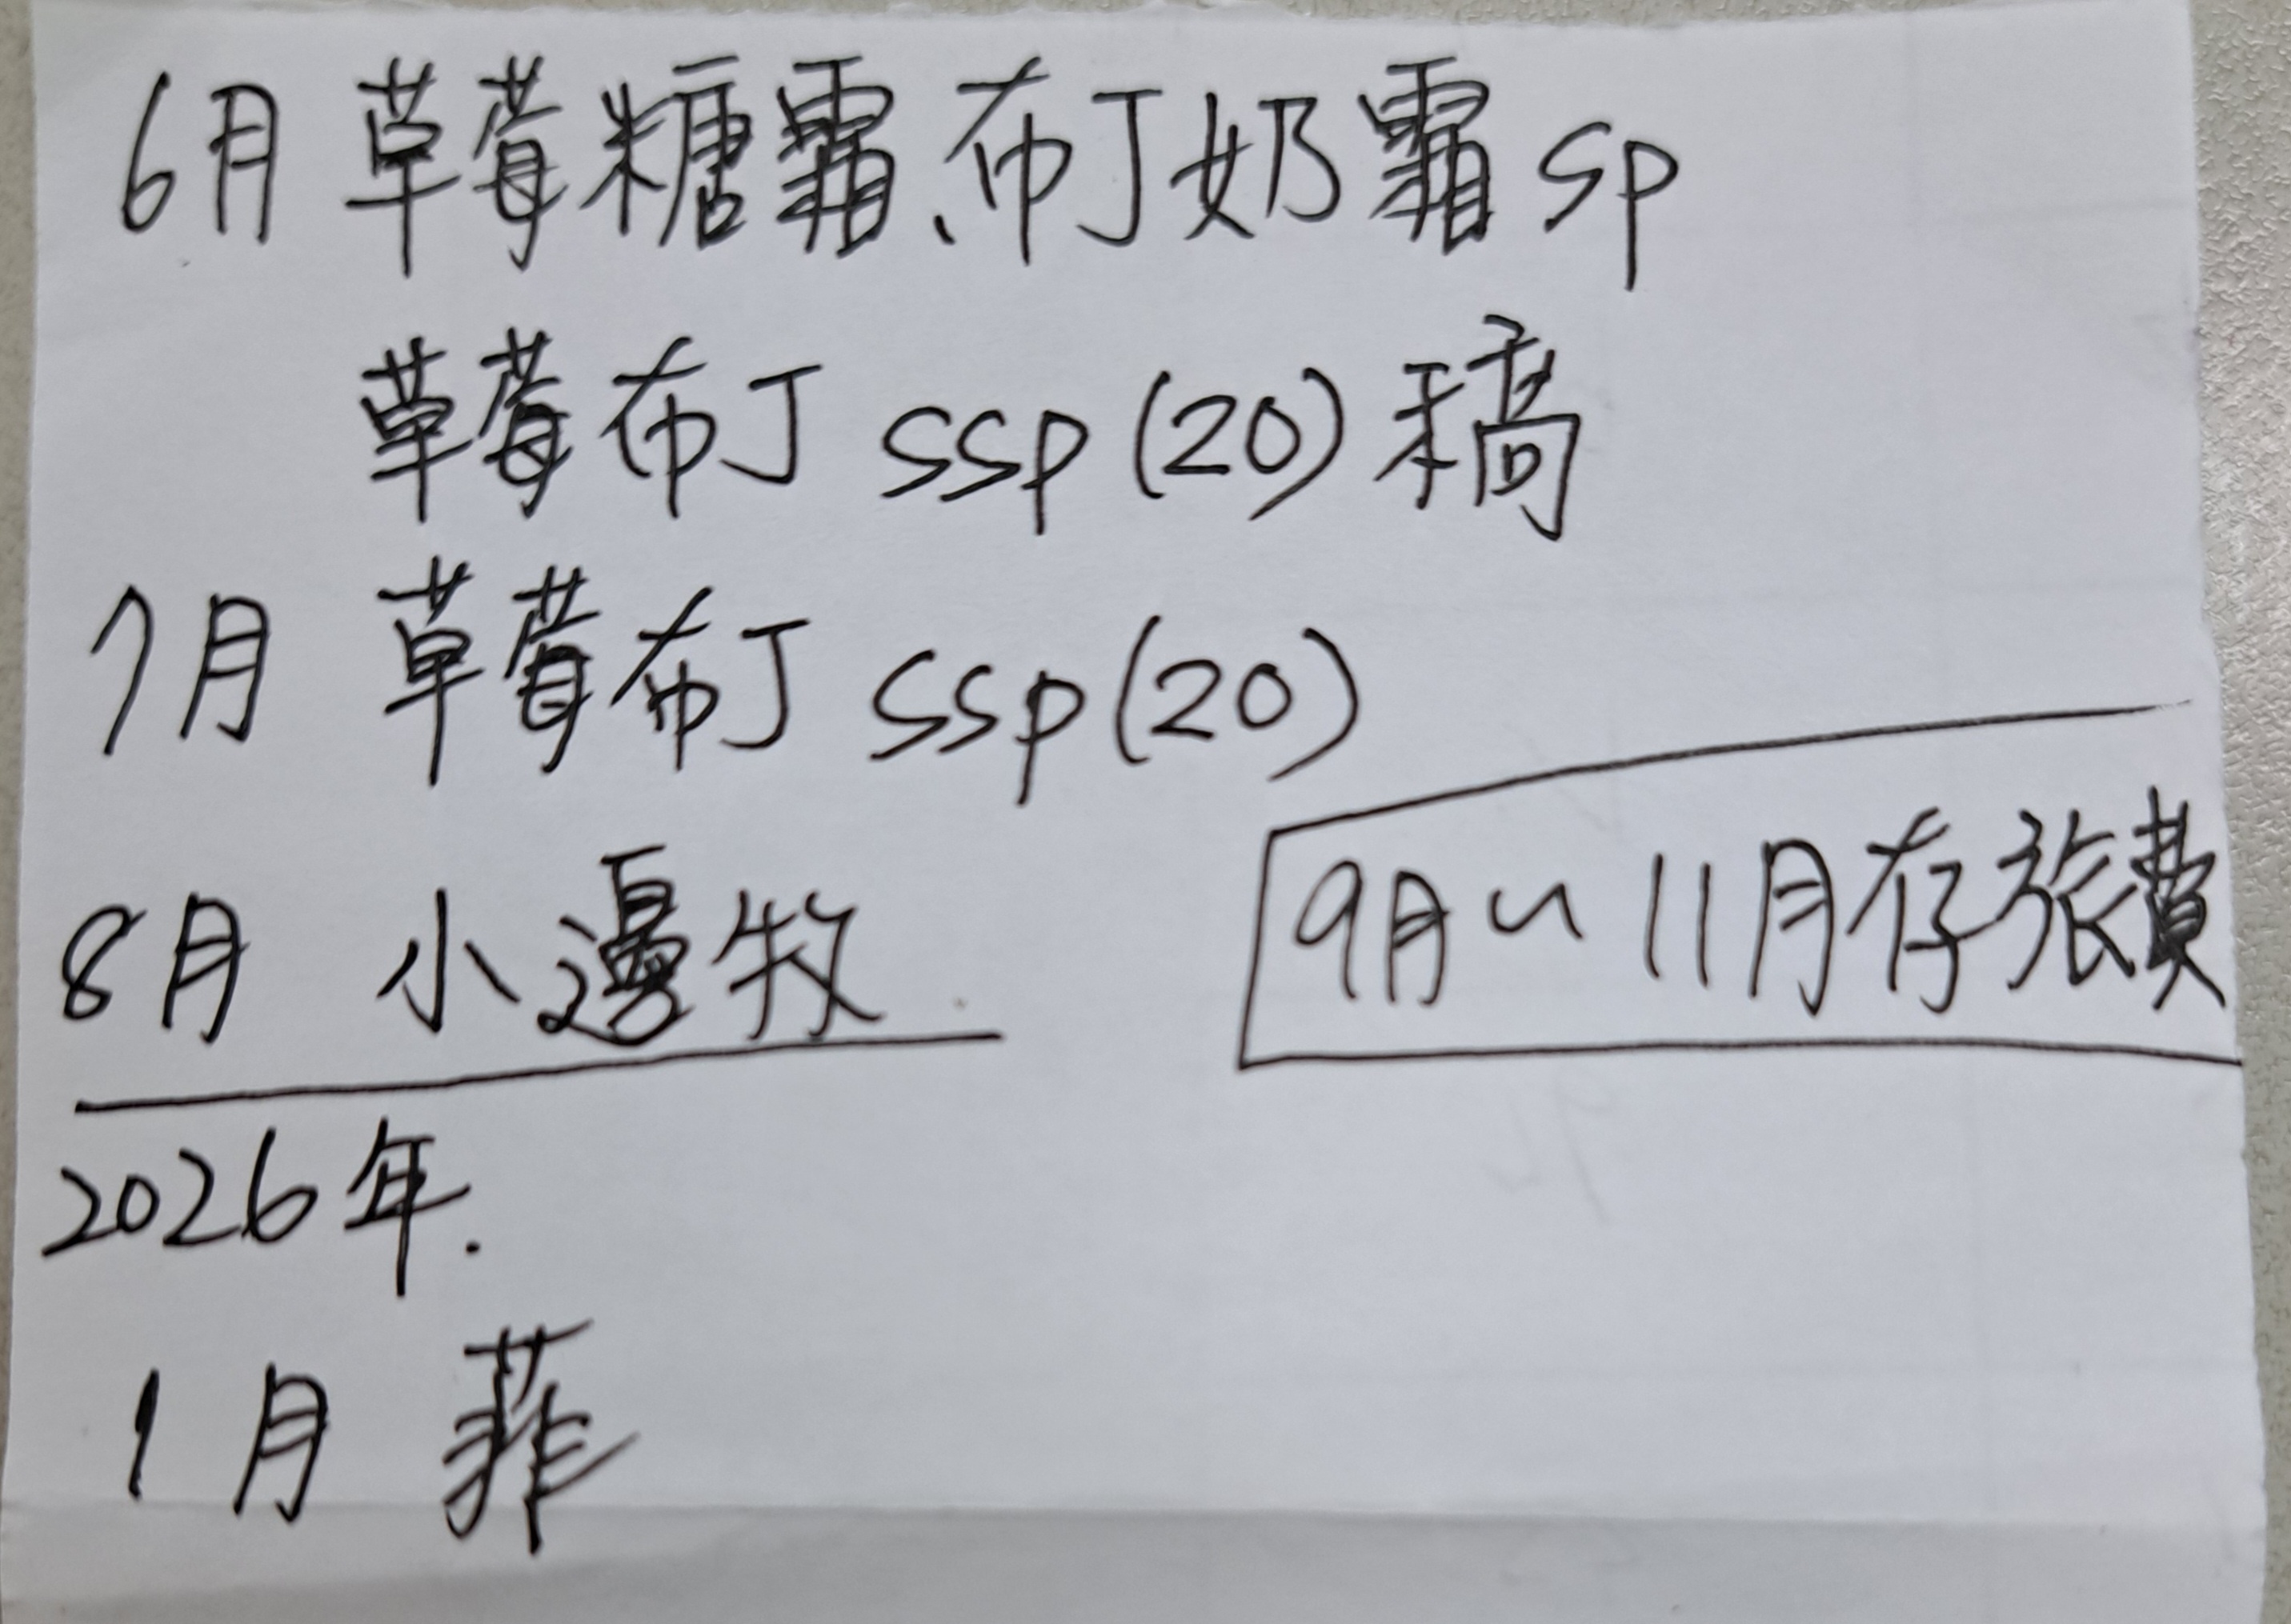 6月 草莓糖霜、布丁奶霜 sp
草莓布丁 ssp (20) 稿
7月 草莓布丁 ssp (20)
8月 小邊牧
9月~11月存旅費
2026年.
1月 菲